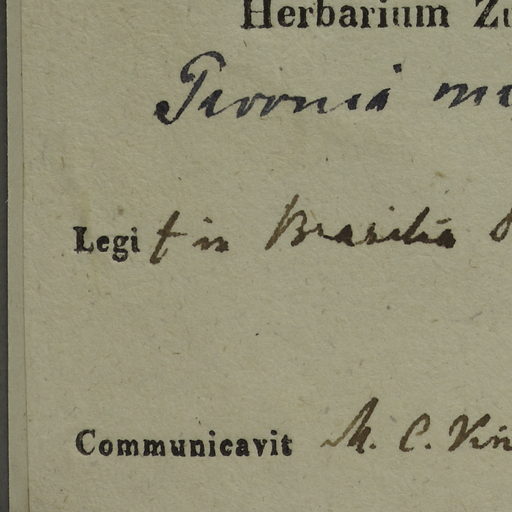 Herbarium Zu
Pavonia
Legit in Brasilia
Communicavit M. C. Vin